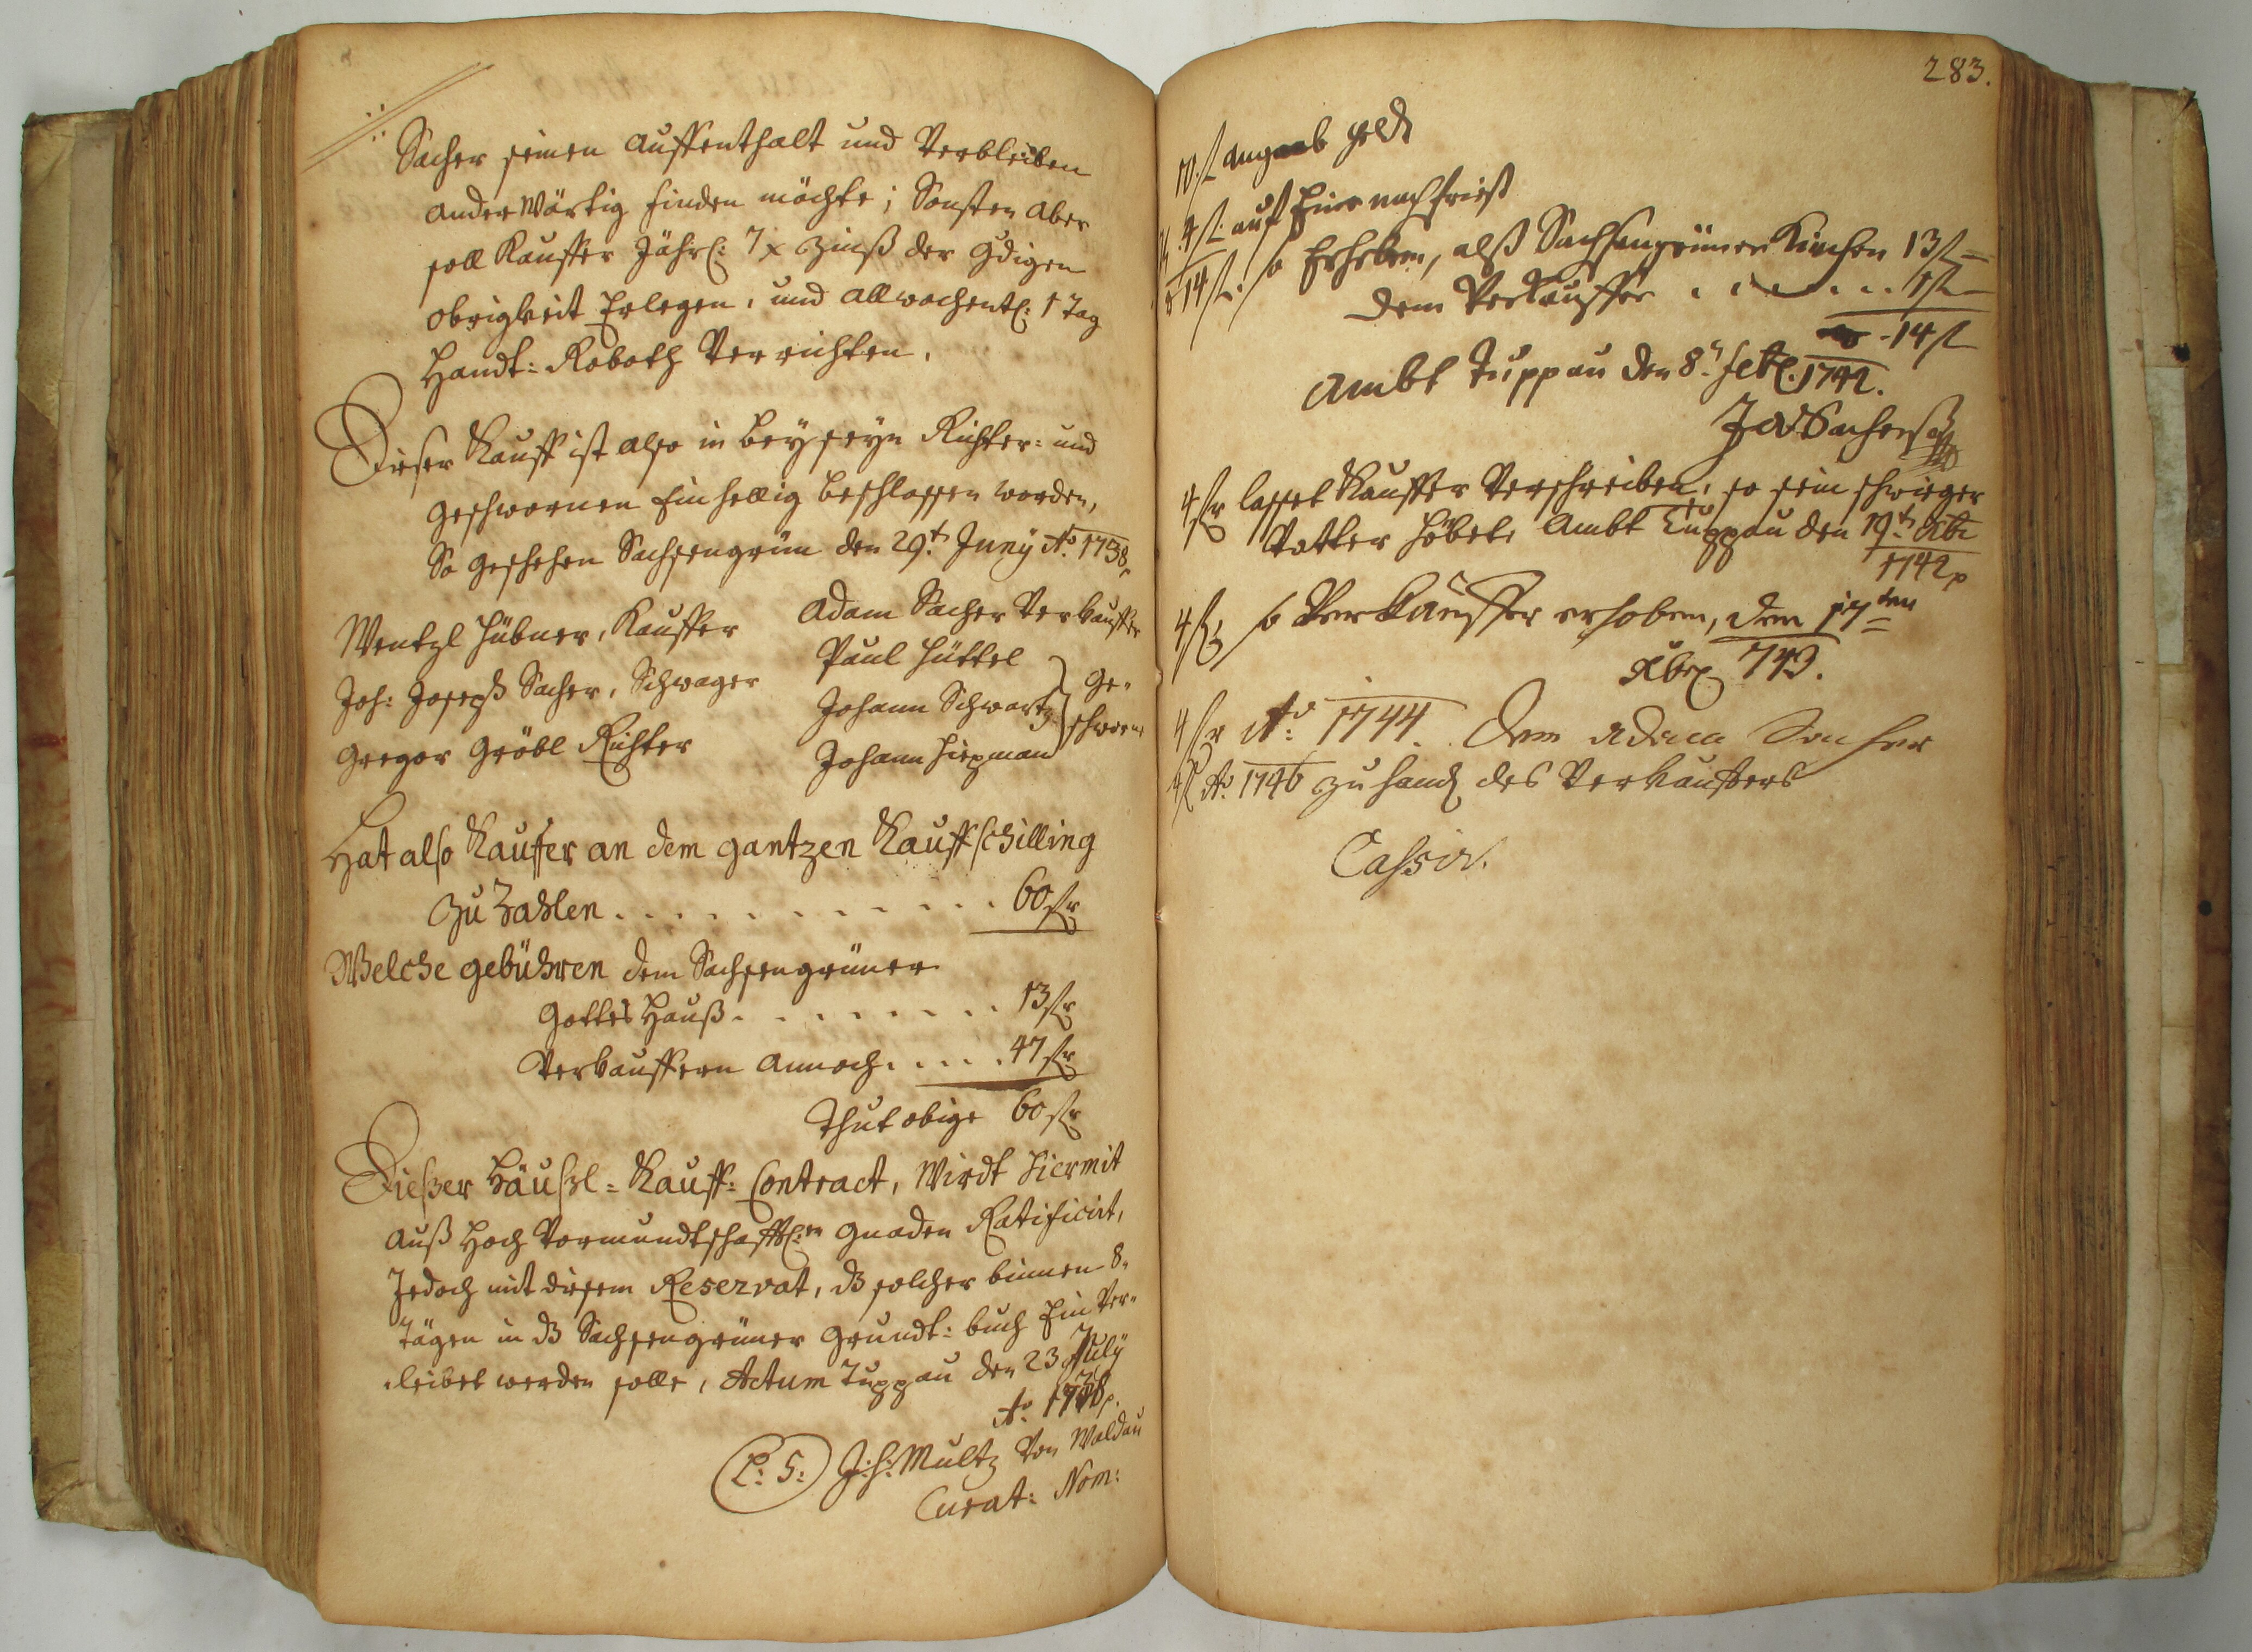 Sacher seinen Auffenthalt und Verbleiben
anderwärtig finden möchte; Sonsten aber
soll Kauffer Jährl: 7 x Zinß der Gdigen
Obrigkeit Erlegen, und allwochentl: 1 Tag
Handt: Roboth Verrichten.
Dieser Kauff ist also in beyseyn Richter: und
Geschwornen Einhellig beschlossen worden,
So geschehen Sachsengrün den 29.t Juny Ao. 1738.
Wentzl Hübner, Kauffer
Joh: Joseph Sacher, Schwager
Gregor Gröbl Richter
Adam Sacher Verkauffer
Paul Hüttel
Johann Schwartz
Johann Siegman
Ge-
schworne
Hat also Kauffer an dem gantzen Kauffschilling
zu Zahlen . . . . . . . . . . . . 60 fr
Welche gebühren dem Sachsengrüner
Gottes Hauß . . . . . . . . . 13 fr
Verkauffern annoch . . . . . 47 fr
Thut obige 60 fr
Dießer Häußl=Kauff: Contract, Wirdt hiermit
auß Hoch Vormundtschafftl:n Gnaden Ratificirt,
Jedoch mit diesem Reservat, dß solcher binnen 8.
tägen in dß Sachsengrüner Grundt: buch Ein Ver-
leibet werden solle, Actum Tuppau den 23 July
Ao. 1738.
L: S: J: H: Multz Von Waldau
Curat: Nom:
283.
10. f angaab geldt
4 f. auf Eine nachfrist
14 f. so Erheben, alß Sachsengrüner Kirchen 13 f
dem Verkauffer . . . . . . . 1 f
14 f
Ambt Tuppau den 8.t 1742.
4 fr lasset Kauffer Verschreiben, so sein schwieger
Vatter höbet. Ambt Tuppau den 19.t Xbr
1742
4 f, so Verkauffer erhoben, dem 17ten
Xbr 743.
4 fr Ao: 1744. dem Adam Sacher
4 f Ao. 1746 zu Handt des Verkauffers
Cassir.